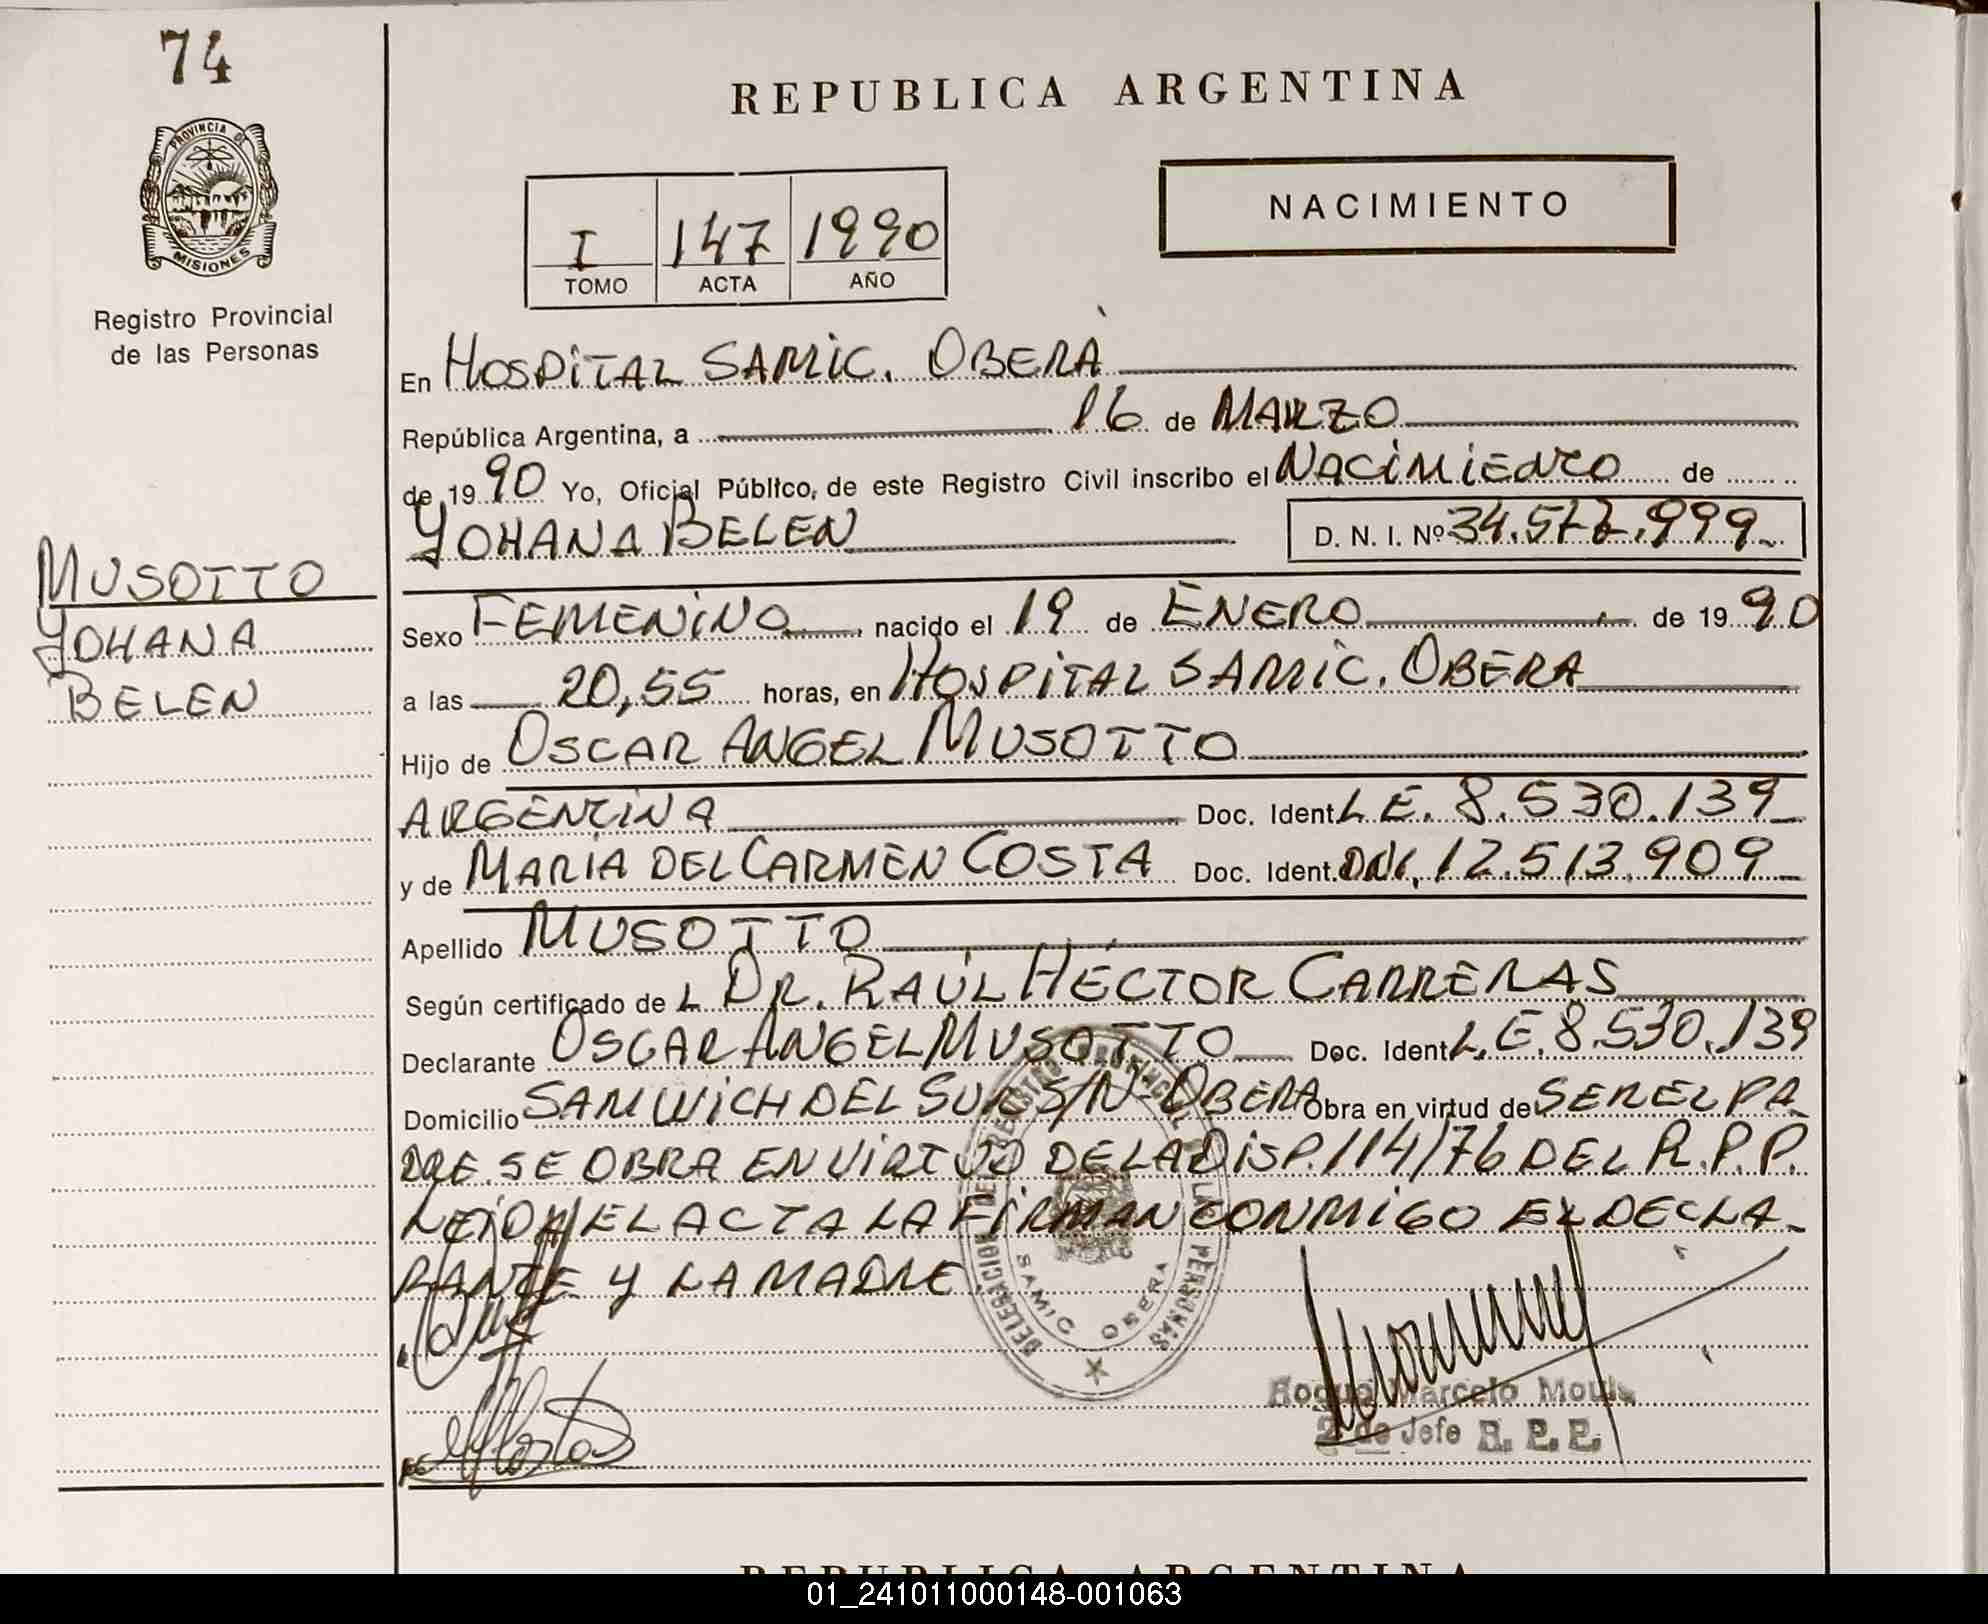 74
PROVINCIA DE
MISIONES
Registro Provincial
de las Personas
MUSOTTO
YOHANA
BELEN
REPUBLICA ARGENTINA
I 147 1990
TOMO ACTA AÑO
NACIMIENTO
En HOSPITAL SAMIC. OBERÁ
República Argentina, a 16 de MARZO
de 19 90 Yo, Oficial Público, de este Registro Civil inscribo el NACIMIENTO de
YOHANA BELEN D. N. I. Nº 34.5 .999
Sexo FEMENINO nacido el 19 de ENERO de 19 90
a las 20,55 horas, en HOSPITAL SAMIC. OBERA
Hijo de OSCAR ANGEL MUSOTTO
ARGENTINA Doc. Ident. L.E. 8.530.139
y de MARÍA DEL CARMEN COSTA Doc. Ident. DNI. 12.513.909
Apellido MUSOTTO
Según certificado de L DR. RAÚL HÉCTOR CARRERAS
Declarante OSCAR ANGEL MUSOTTO Doc. Ident. L.E. 8.530.139
Domicilio SAMWICH DEL SUR S/N - OBERA Obra en virtud de SER EL PA
DRE. SE OBRA EN VIRTUD DE LA DISP. 114/76 DEL R.P.P.
LEIDA EL ACTA LA FIRMAN CONMIGO EL DECLA
RANTE Y LA MADRE.
DELEGACION DEL REGISTRO PROVINCIAL DE LAS PERSONAS
SAMIC OBERA
Roque Marcelo
2 de Jefe R. P. P.
REPUBLICA ARGENTINA
01_241011000148-001063